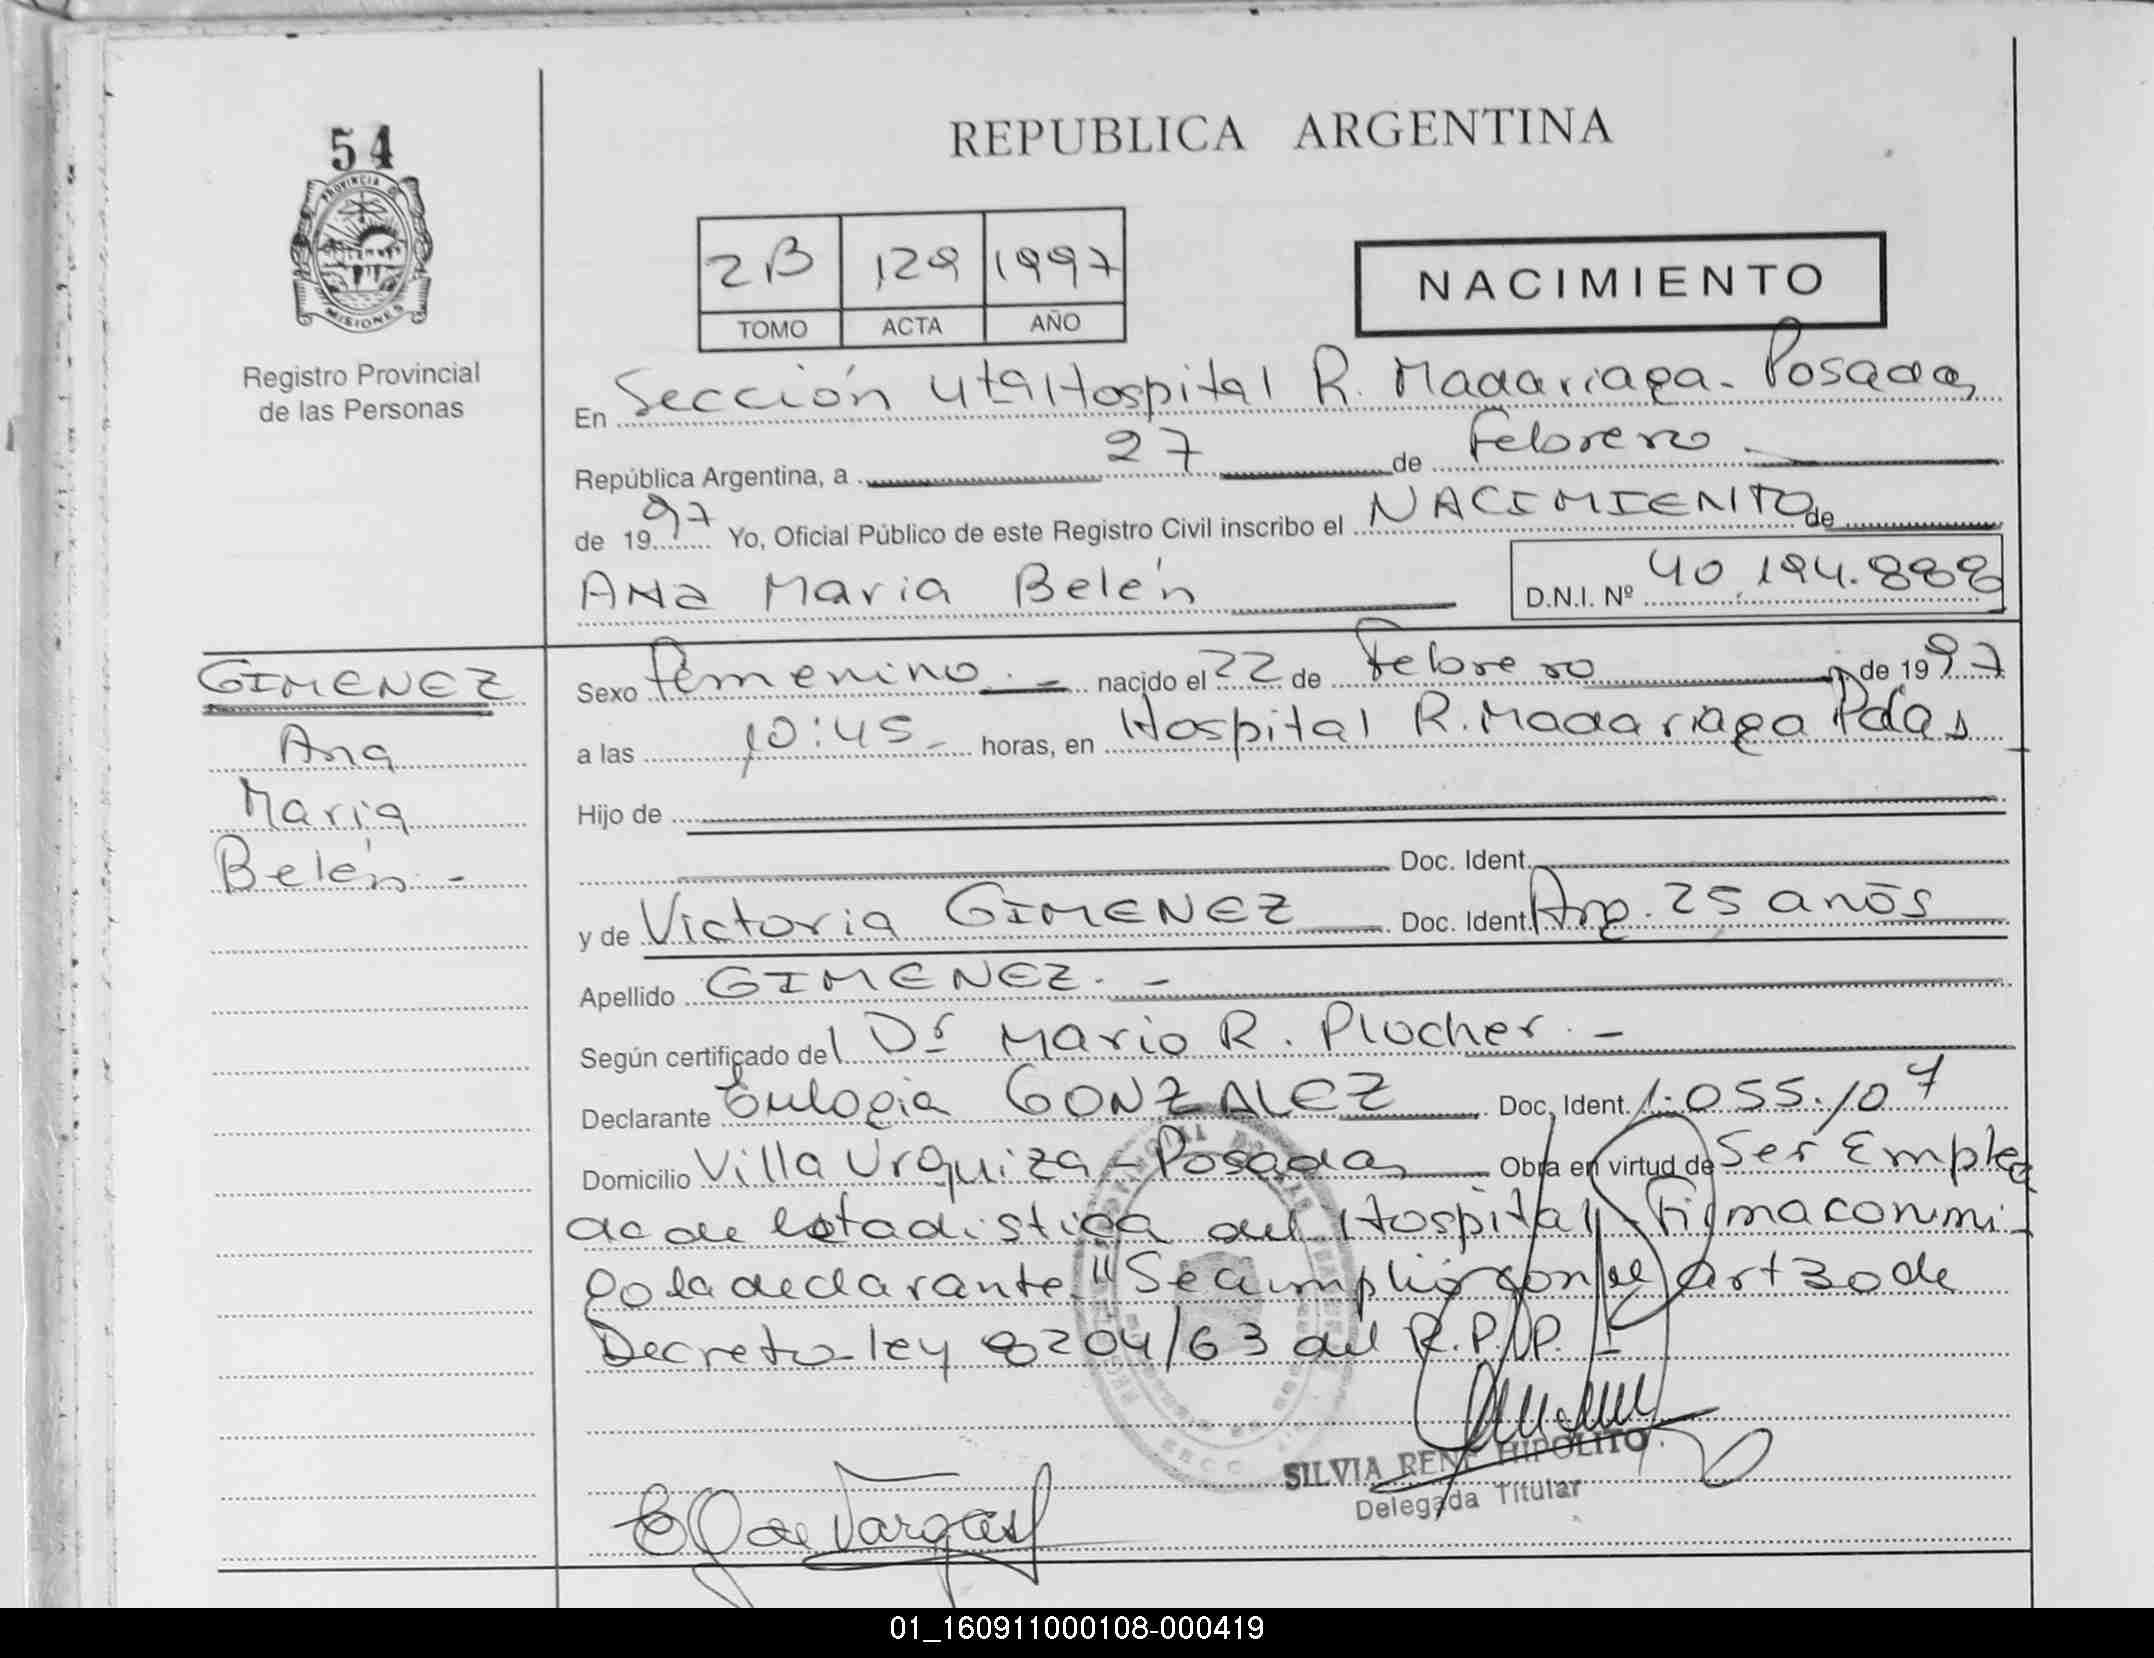 54
REPUBLICA ARGENTINA
PROVINCIA DE
MISIONES
Registro Provincial
de las Personas
2B 129 1997
TOMO ACTA AÑO
NACIMIENTO
En Sección 4ta Hospital R. Madariaga - Posadas
República Argentina, a 27 de Febrero
de 1997 Yo, Oficial Público de este Registro Civil inscribo el NACIMIENTO de
Ana Maria Belén D.N.I. Nº 40.194.888
GIMENEZ
Ana
Maria
Belén. -
Sexo femenino. - nacido el 22 de Febrero de 1997
a las 10:45 - horas, en Hospital R. Madariaga Pdas
Hijo de
Doc. Ident.
y de Victoria GIMENEZ Doc. Ident. Arg. 25 años
Apellido GIMENEZ. -
Según certificado del Dr Mario R. Plocher. -
Declarante Eulogia GONZALEZ Doc. Ident. 1.055.107
Domicilio Villa Urquiza - Posadas Obra en virtud de Ser Emplea
da de estadistica del Hospital. Firma conmi
go la declarante. "Se cumplió con el art 30 de
Decreto-ley 8204/63 del R.P.P. -
SILVIA RENE HIPOLITO
Delegada Titular
de Vargas
01_160911000108-000419